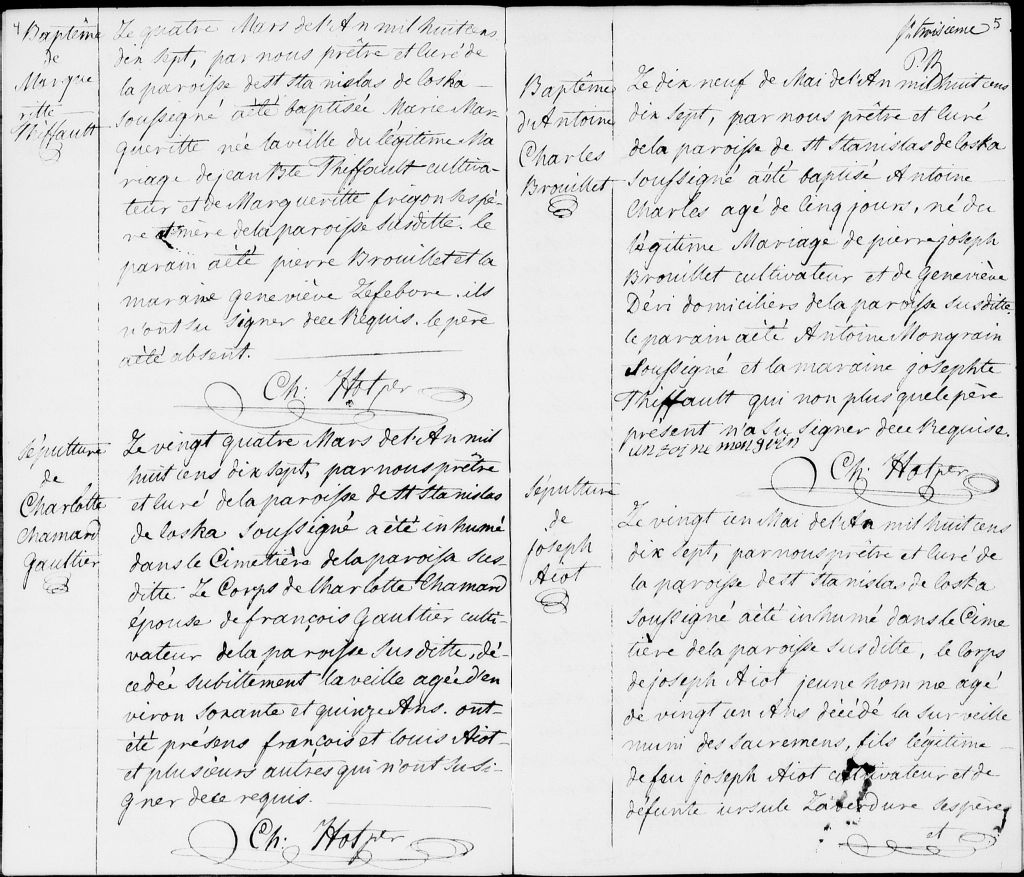 4
Baptême
de
Margue
ritte
Thiffault
Le quatre Mars de l'An mil huit cens
dix sept, par nous prêtre et Curé de
la paroisse de St Stanislas de Coska
soussigné a été baptisée Marie Mar-
gueritte née la veille du légitime Ma
riage de jean Bte Thiffault cultiva-
teur et de Margueritte frigon ses pé-
re et mére de la paroisse susditte. le
parain a été pierre Brouillet et la
maraine geneviève Lefebvre. ils
n'ont su signer de ce Requis. le père
a été absent.
Ch: Hotper
Sépulture
de
Charlotte
Chamard
Gaultier
Le vingt quatre Mars de l'An mil
huit cens dix sept, par nous prêtre
et Curé de la paroisse de St Stanislas
de Coska soussigné a été inhumé
dans le Cimetière de la paroisse sus-
ditte Le Corps de Charlotte Chamard
épouse de françois Gaultier culti-
vateur de la paroisse susditte, dé-
cedée subittement la veille agée d'en
viron soxante et quinze Ans. ont
été présens françois et louis Aiot
et plusieurs autres qui n'ont su si-
gner de ce requis.
Ch: Hotper
5
ft. troisième
P.B
Baptême
d'Antoine
Charles
Brouillet
Le dix neuf de Mai de l'An mil huit cens
dix sept, par nous prêtre et Curé
de la paroisse de St Stanislas de Coska
soussigné a été baptisé Antoine
Charles agé de Cinq jours, né du
légitime Mariage de pierre joseph
Brouillet cultivateur et de Geneviève
Dévi domiciliers de la paroisse susditte.
le parain a été Antoine Mongrain
Soussigné et la maraine josephte
Thiffault qui non plus que le père
présent n'a su signer de ce Requise.
untoine mongrin
Ch: Hotper
Sépulture
de
Joseph
Aiot
Le vingt un Mai de l'An mil huit cens
dix sept, par nous prêtre et Curé de
la paroisse de St Stanislas de Coska
soussigné a été inhumé dans le Cime
tière de la paroisse susditte, le Corps
de joseph Aiot jeune homme agé
de vingt un Ans décédé la surveille
muni des sacremens, fils légitime
de feu joseph Aiot cultivateur et de
défunte ursule Laverdure ses père
et